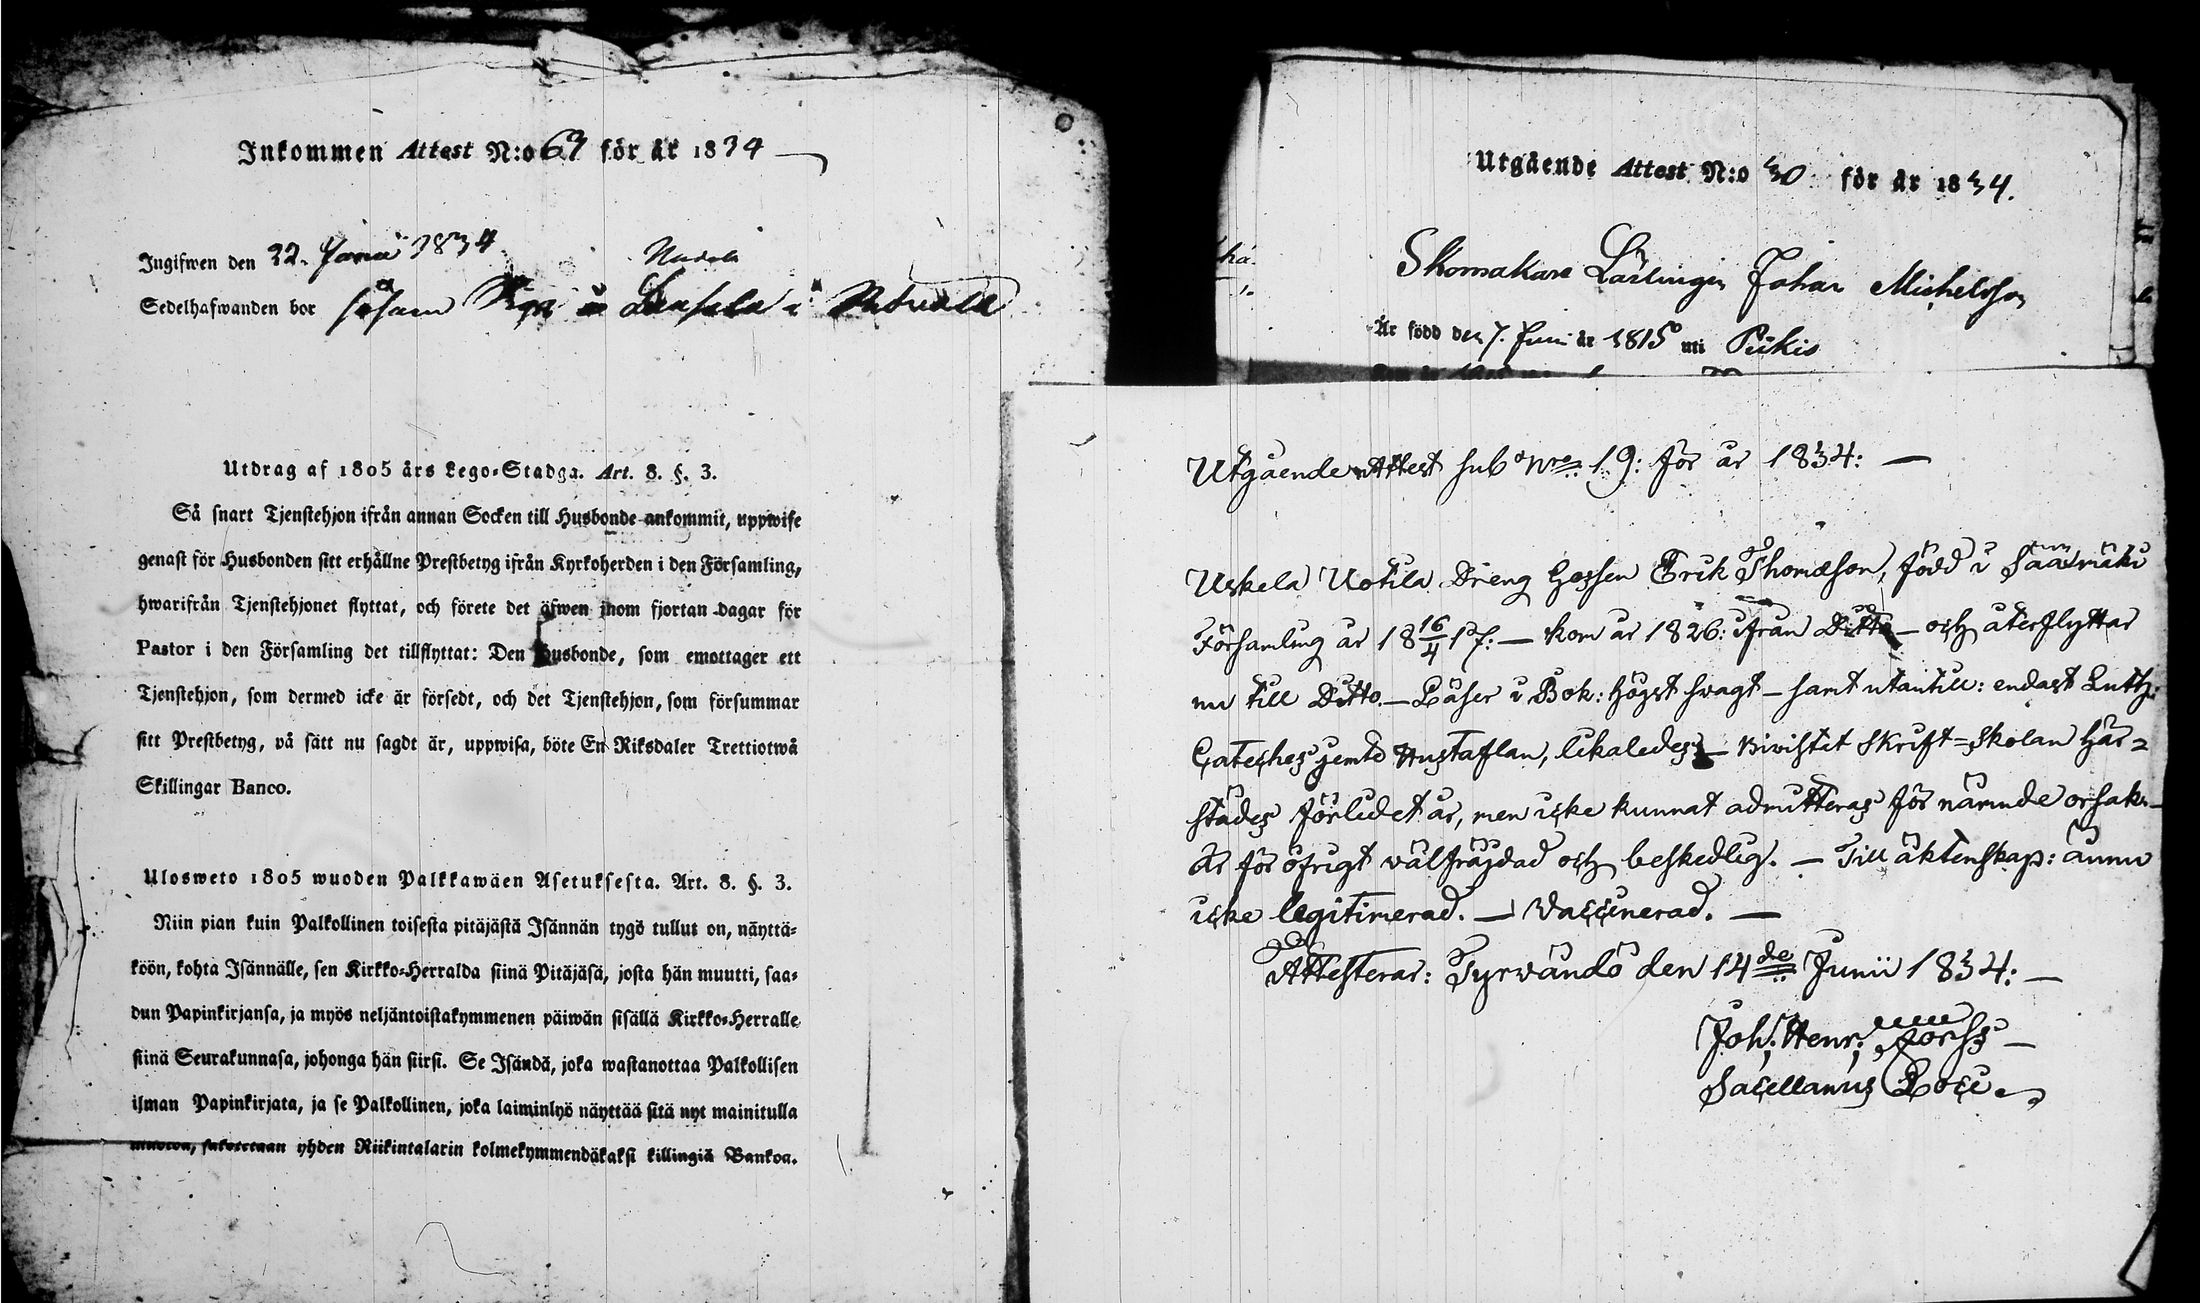 Inkommen Attest N:o 67 för år 1834
Ingifwen den 22. Junii 1834
Sedelhafwanden bor såsom i
Utdrag af 1805 års Lego-Stadga. Art. 8. §. 3.
Så snart Tjenstehjon ifrån annan Socken till Husbonde ankommit, uppwise
genast för Husbonden sitt erhållne Prestbetyg ifrån Kyrkoherden i den Församling,
hwarifrån Tjenstehjonet flyttat, och förete det äfwen inom fjortan dagar för
Pastor i den Församling det tillflyttat: Den Husbonde, som emottager ett
Tjenstehjon, som dermed icke är försedt, och det Tjenstehjon, som försummar
sitt Prestbetyg, på sätt nu sagdt är, uppwisa, böte En Riksdaler Trettiotwå
Skillingar Banco.
Ulosweto 1805 wuoden Palkkawäen Asetuksesta. Art. 8. §. 3.
Niin pian kuin Palkollinen toisesta pitäjästä Isännän tygö tullut on, näyttä-
köön, kohta Isännälle, sen Kirkko-Herralda siinä Pitäjäsä, josta hän muutti, saa-
dun Papinkirjansa, ja myös neljäntoistakymmenen päiwän sisällä Kirkko-Herralle
siinä Seurakunnasa, johonga hän siirsi. Se Isändä, joka wastanottaa Palkollisen
ilman Papinkirjata, ja se Palkollinen, joka laiminlyö näyttää sitä nyt mainitulla
muoton, sakotetaan yhden Riikintalarin kolmekymmendäkaksi killingiä Bankoa.
Utgående Attest N:o 30 för år 1834.
Skomakare Lärlingen Johan Michelsson
Är född den 7. Juni år 1815 uti Piikis
Utgående Attest sub Nro 19: för år 1834: —
Uskela Uotila Dreng Gossen Erik Thomæson, född i Säärmäki
Församling år 18 16/4 17. — kom år 1826: ifrån Ditto — och återflyttar
nu till Ditto. — Läser i Bok: högst swagt — samt utantill: endast Luth:
Cateches jemte Hustaflan, likaledes — Biwistat Skrift-Skolan här-
städes förledet år, men icke kunnat admitteras för nämnde orsak. —
Är för öfrigt wälfrägdad och beskedlig. — Till äktenskap: ännu
icke legitimerad. — Vaccinerad. —
Attesteras: Tyrwändö den 14de Junii 1834: —
Joh: Henr: Forss —
Sacellanus Loci.